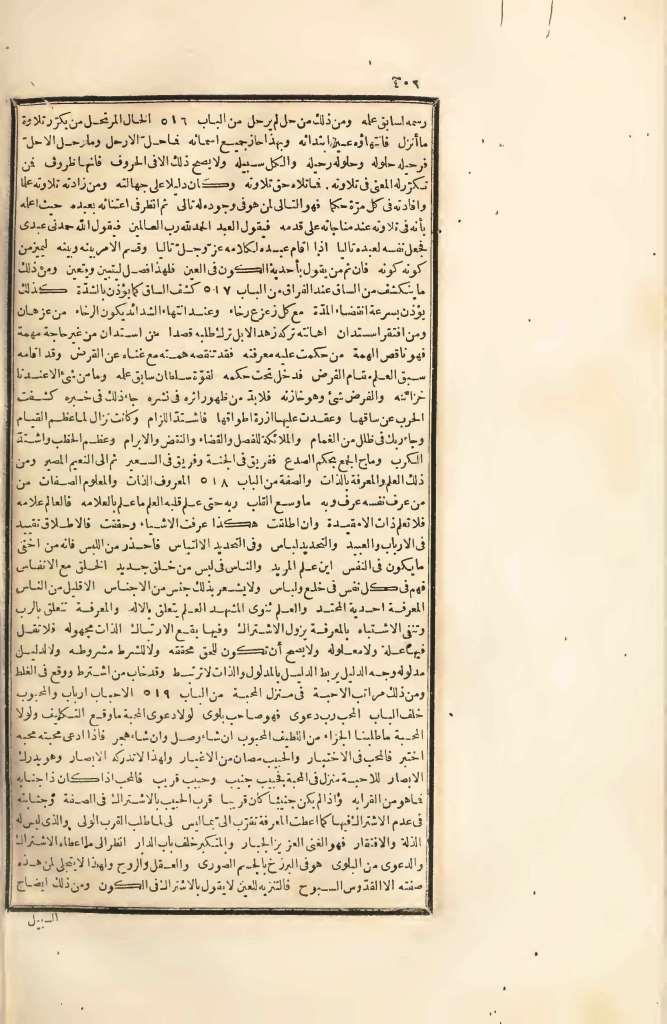 ٤٠٢
رسمه لسابق علمه ومن ذلك من حل لم يرحل من الباب ٥١٦ الحال المرتحل من يكرّر تلاوة
ما أنزل فانتهاؤه عين ابتدائه وبهذا حاز جميع اسمائه فما حلّ الا رحل وما رحل الا حلّ
فرحيله حلوله وحلوله رحيله والكل سبيله ولا يصح ذلك الا فى الحروف فانها ظروف فمن
تكرّر له المعنى فى تلاوته فما تلاه حق تلاوته وكان دليلا على جهالته ومن زادته تلاوته علما
وافادته فى كل مرّة حكما فهو التالى لمن هو فى وجوده له تالى ثم انظر فى اعتنائه بعبده حيث اعلمه
بأنه فى تلاوته عند مناجاته على قدمه فيقول العبد الحمد لله رب العالمين فيقول الله حمدنى عبدى
فجعل نفسه لعبده تاليا اذا اقام عبده لكلامه عزّ وجلّ تاليا وقسم الامر بينه وبينه ليميز من
كونه كونه فان ثم من يقول بأحدية الكون فى العين فلهذا فصل ليتبين ويتعين ومن ذلك
ما ينكشف من الساق عند الفراق من الباب ٥١٧ كشف الساق كما يؤذن بالشدّة كذلك
يؤذن بسرعة انقضاء المدّة مع كل زعزع رخاء وعند انتهاء الشدائد يكون الرخاء من عزهان
ومن افتقر استدان اهانته تركه زهدا لا بل ترك طلبه قصدا من استدان من غير حاجة مهمة
فهو ناقص الهمة من حكمت عليه معرفته فقد تنقصه همته مع غناه عن القرض وقد اقامه
سبق العلم مقام الفرض فدخل تحت حكمه لقوّة سلطان سابق علمه وما من شئ الا عندنا
خزائنه والفرض شئ وهو خازنه فلابدّ من ظهور اثره فى نشره جاء ذلك فى خبره كشفت
الحرب عن ساقها وعقدت عليها ازرة اطواقها فاشتدّ اللزام وكانت نزال لما عظم القيام
وجاء ربك فى ظلل من الغمام والملائكة للفصل والقضاء والنقض والابرام وعظم الخطب واشتدّ
الكرب وماج الجمع بحكم الصدع ففريق فى الجنة وفريق فى السعير ثم الى النعيم المصير ومن
ذلك العلم والمعرفة بالذات والصفة من الباب ٥١٨ المعروف الذات والمعلوم الصفات من
من عرف نفسه عرف ربه ما وسع القلب ربه حتى علم قلبه العلم ما علم بالعلامه فالعالم علامه
فلا تعلم ذات الا مقيدة وان اطلقت هكذا عرفت الاشياء وحققت فالاطلاق تقييد
فى الارباب والعبيد والتحديد لباس وفى التحديد الالتباس فاحذر من اللبس فانه من اخفى
ما يكون فى النفس اين علم المريد والناس فى لبس من خلق جديد الخلق مع الانفاس
فهم فى كل نفس فى خليع ولباس ولا يشعر بذلك جنس من الاجناس الا قليل من الناس
المعرفة احدية المحتد والعلم ثنوى المشهد العلم يتعلق بالاله والمعرفة تتعلق بالرب
وتنفى الاشتباه بالمعرفة يزول الاشتراك وفيها يقع الارتباك الذات مجهوله فلا تقل
فيها علة ولا معلوله ولا يصح أن تكون للحق محققه ولا للشرط مشروطه ولا لدليل
مدلوله وجه الدليل يربط الدليل بالمدلول والذات لا ترتبط وقد خاب من اشترط ووقع فى الغلط
ومن ذلك مراتب الاحبة فى منزل المحبة من الباب ٥١٩ الاحباب ارباب والمحبوب
خلف الباب المحب رب دعوى فهو صاحب بلوى لولا دعوى المحبة ما وقع التكليف ولولا
المحبة ما طلبنا الجزاء من اللطيف المحبوب ان شاء وصل وان شاء هجر فاذا ادعى محبته محبه
اختبر فالمحب فى الاختيار والحبيب مصان من الاغيار ولهذا لا تدركه الابصار وهو يدرك
الابصار للاحبة منزل فى المحبة فحبيب جنيب وحبيب قريب فالمحب اذا كان ذا جنابه
فما هو من القرابه واذا لم يكن جنيبا كان قريبا قرب الحبيب بالاشتراك فى الصفة وجنابته
فى عدم الاشتراك فيها كما اعطت المعرفة تقرّب الىّ بما ليس لى لما طلب القرب الولى والذى ليس له
الذلة والافتقار فهو الغنى العزيز الجبار والمتكبر خلف باب الدار انظر الى ما اعطاه الاشتراك
والدعوى من البلوى هو فى البرزخ بالجسم الصورى والعقل والروح ولهذا لا يتجلى لمن هذه
صفته الا القدّوس السبوح فالتنزيه للعين لا يقول بالاشتراك فى الكون ومن ذلك ايضاح
السبيل